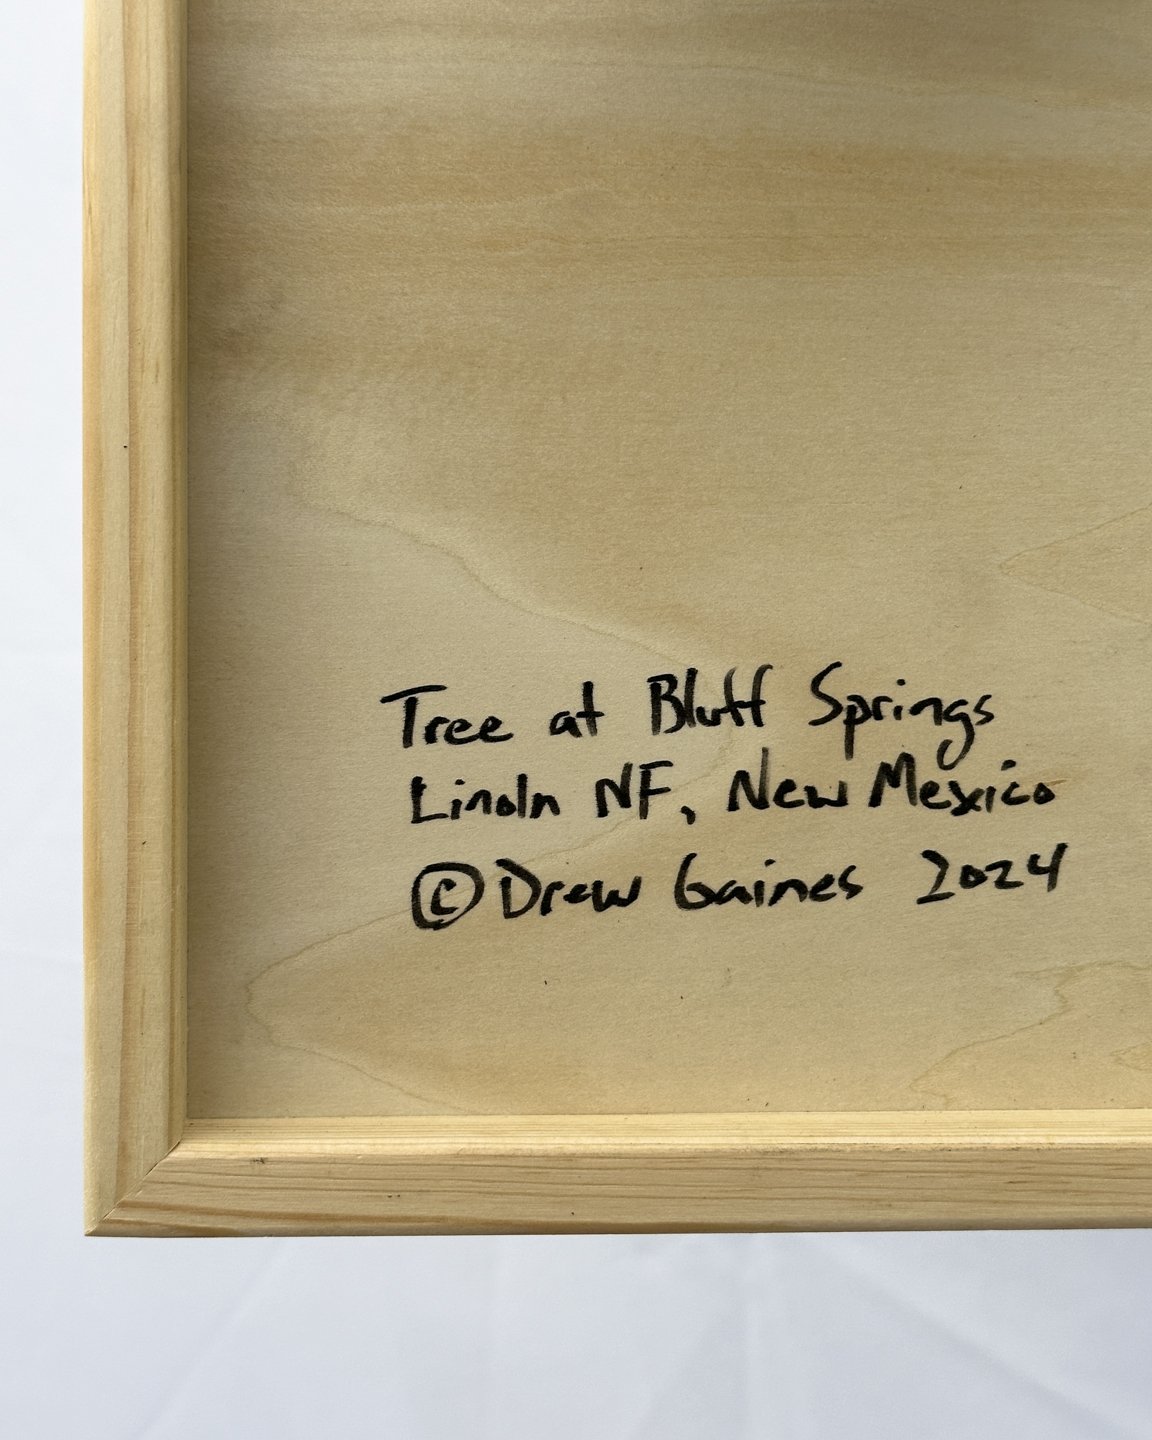 Tree at Bluff Springs
Linoln NF, New Mexico
©Drew Gaines 2024